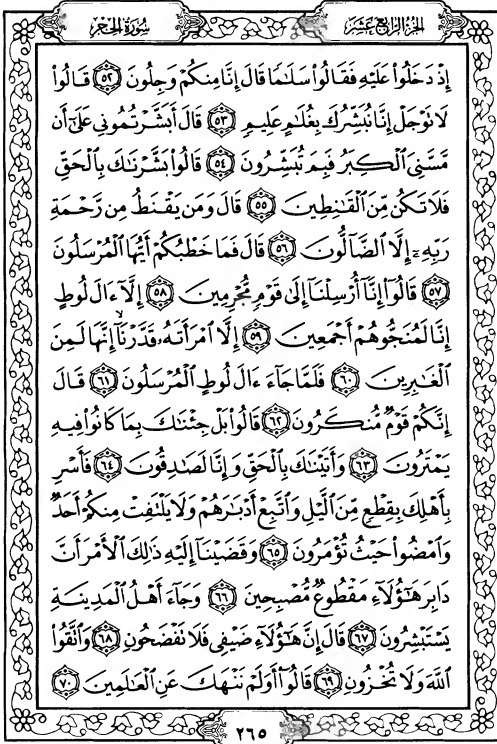 سُورَةُ الحِجْرِ
الجُزْءُ الرَّابِعَ عَشَرَ
إِذْ دَخَلُوا۟ عَلَيْهِ فَقَالُوا۟ سَلَٰمًا قَالَ إِنَّا مِنكُمْ وَجِلُونَ ٥٢ قَالُوا۟
لَا تَوْجَلْ إِنَّا نُبَشِّرُكَ بِغُلَٰمٍ عَلِيمٍ ٥٣ قَالَ أَبَشَّرْتُمُونِي عَلَىٰٓ أَن
مَّسَّنِيَ ٱلْكِبَرُ فَبِمَ تُبَشِّرُونَ ٥٤ قَالُوا۟ بَشَّرْنَٰكَ بِٱلْحَقِّ
فَلَا تَكُن مِّنَ ٱلْقَٰنِطِينَ ٥٥ قَالَ وَمَن يَقْنَطُ مِن رَّحْمَةِ
رَبِّهِۦٓ إِلَّا ٱلضَّآلُّونَ ٥٦ قَالَ فَمَا خَطْبُكُمْ أَيُّهَا ٱلْمُرْسَلُونَ
٥٧ قَالُوٓا۟ إِنَّآ أُرْسِلْنَآ إِلَىٰ قَوْمٍ مُّجْرِمِينَ ٥٨ إِلَّآ ءَالَ لُوطٍ
إِنَّا لَمُنَجُّوهُمْ أَجْمَعِينَ ٥٩ إِلَّا ٱمْرَأَتَهُۥ قَدَّرْنَآ إِنَّهَا لَمِنَ
ٱلْغَٰبِرِينَ ٦٠ فَلَمَّا جَآءَ ءَالَ لُوطٍ ٱلْمُرْسَلُونَ ٦١ قَالَ
إِنَّكُمْ قَوْمٌ مُّنكَرُونَ ٦٢ قَالُوا۟ بَلْ جِئْنَٰكَ بِمَا كَانُوا۟ فِيهِ
يَمْتَرُونَ ٦٣ وَأَتَيْنَٰكَ بِٱلْحَقِّ وَإِنَّا لَصَٰدِقُونَ ٦٤ فَأَسْرِ
بِأَهْلِكَ بِقِطْعٍ مِّنَ ٱلَّيْلِ وَٱتَّبِعْ أَدْبَٰرَهُمْ وَلَا يَلْتَفِتْ مِنكُمْ أَحَدٌ
وَٱمْضُوا۟ حَيْثُ تُؤْمَرُونَ ٦٥ وَقَضَيْنَآ إِلَيْهِ ذَٰلِكَ ٱلْأَمْرَ أَنَّ
دَابِرَ هَٰٓؤُلَآءِ مَقْطُوعٌ مُّصْبِحِينَ ٦٦ وَجَآءَ أَهْلُ ٱلْمَدِينَةِ
يَسْتَبْشِرُونَ ٦٧ قَالَ إِنَّ هَٰٓؤُلَآءِ ضَيْفِي فَلَا تَفْضَحُونِ ٦٨ وَٱتَّقُوا۟
ٱللَّهَ وَلَا تُخْزُونِ ٦٩ قَالُوٓا۟ أَوَلَمْ نَنْهَكَ عَنِ ٱلْعَٰلَمِينَ ٧٠
٢٦٥